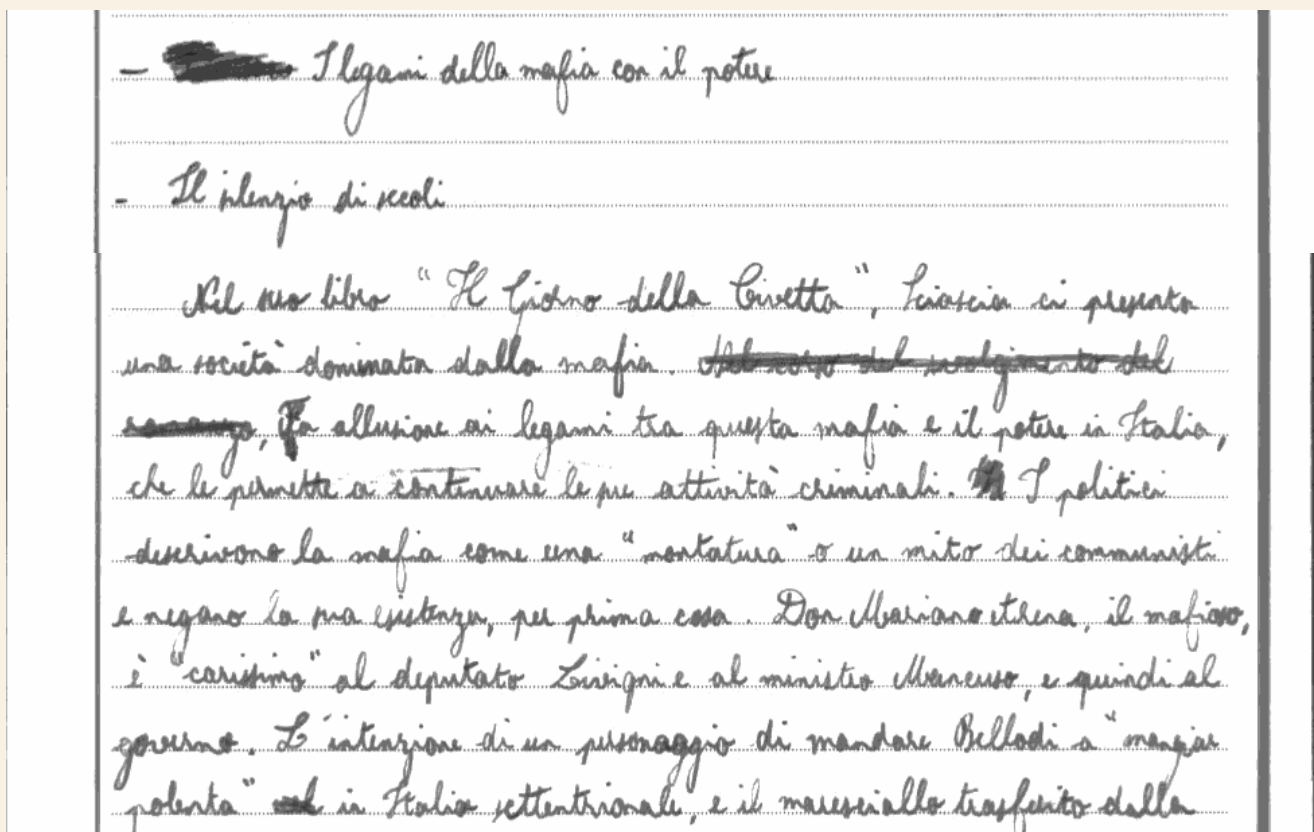 - I legami della mafia con il potere
- Il silenzio di secoli
Nel suo libro "Il Giorno della Civetta", Sciascia ci presenta
una società dominata dalla mafia. Nel corso del svolgimento del
romanzo, Fa allusione ai legami tra questa mafia e il potere in Italia,
che le permette a continuare le sue attività criminali. I politici
descrivono la mafia come una "montatura" o un mito dei communisti
e negano la sua esistenza, per prima cosa. Don Mariano Arena, il mafioso,
è "carissimo" al deputato Livigni e al ministro Mancuso, e quindi al
governo. L'intenzione di un personaggio di mandare Bellodi a "mangiar
polenta" in Italia settentrionale, e il maresciallo trasferito dalla